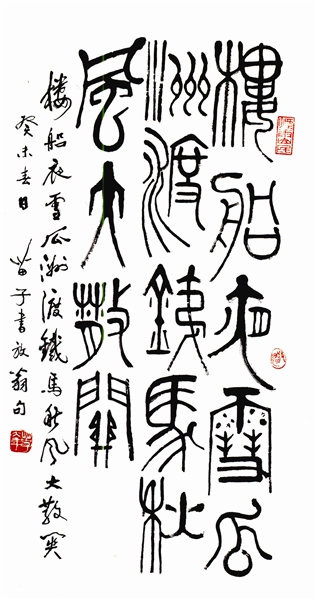 樓船夜雪瓜
洲渡銕馬秋
風大散關
楼船夜雪瓜洲渡鐵馬秋风大散関
癸未春日 苗子書放翁句